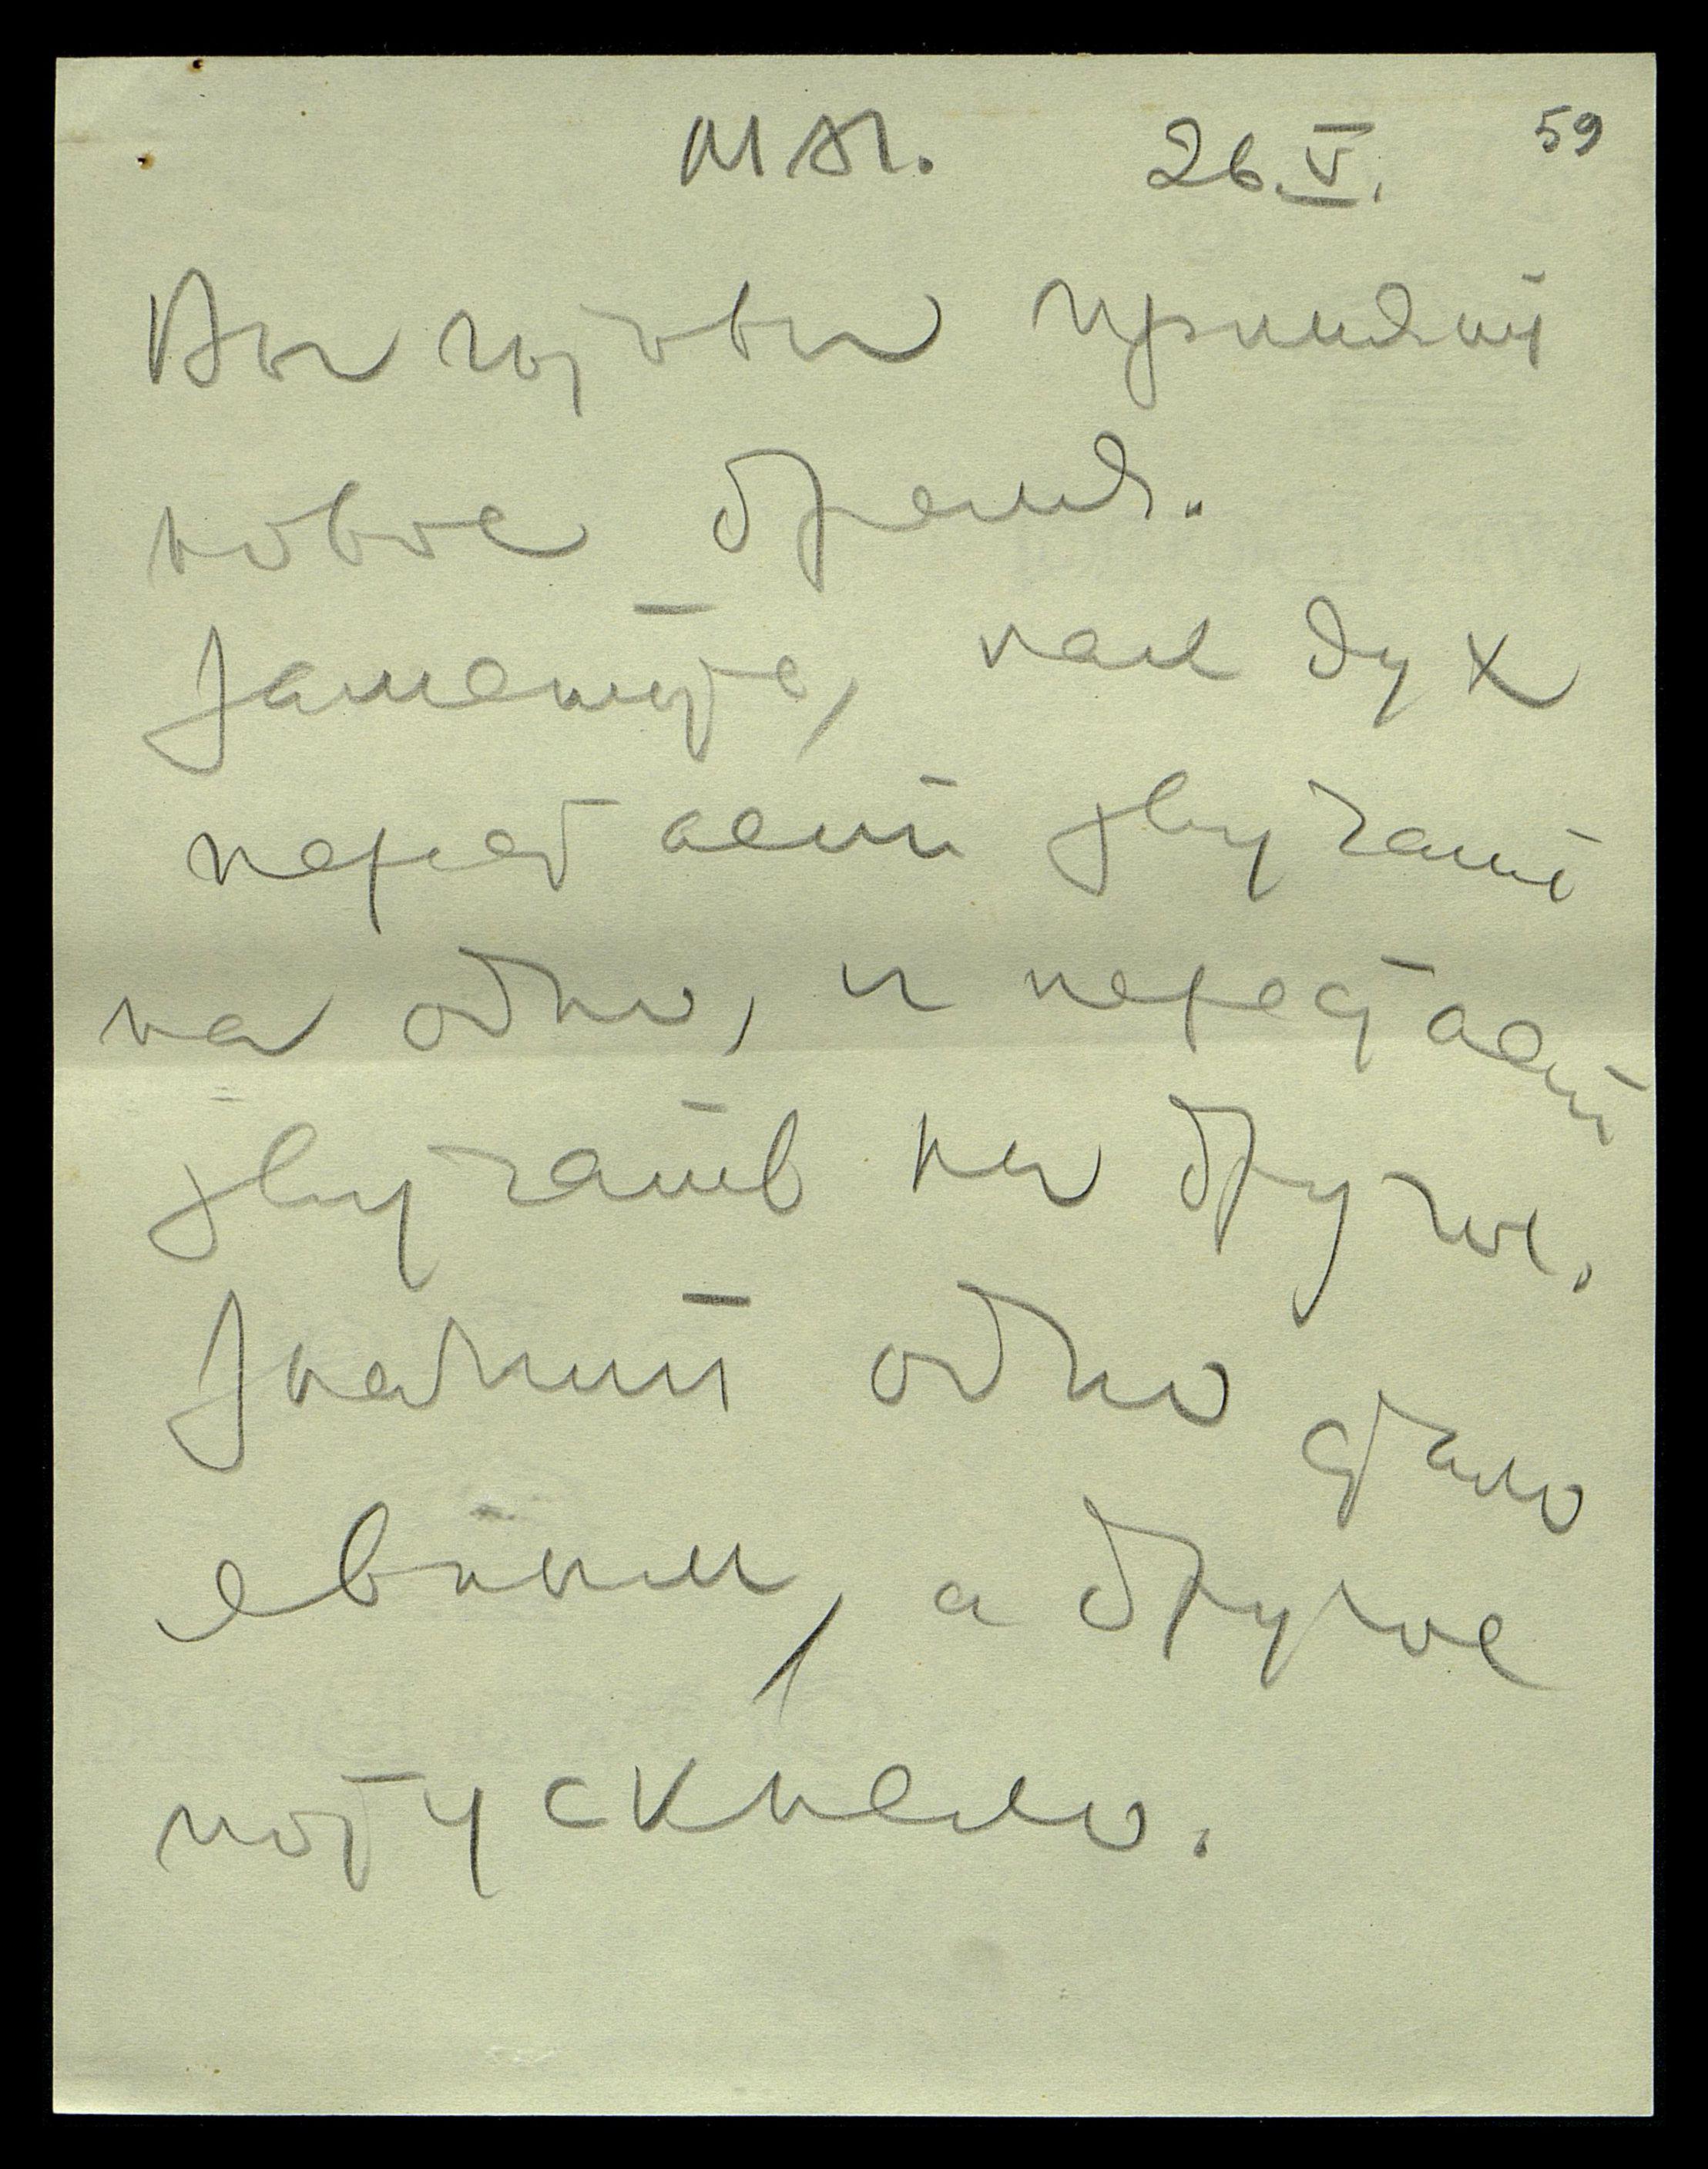 М∴ 26.V. 59
Вы готовы принять
новое бремя.
Заметьте, как дух
перестает звучать
на одно, и перестает
звучать на другое.
Значит одно стало
явным, а другое
потускнело.